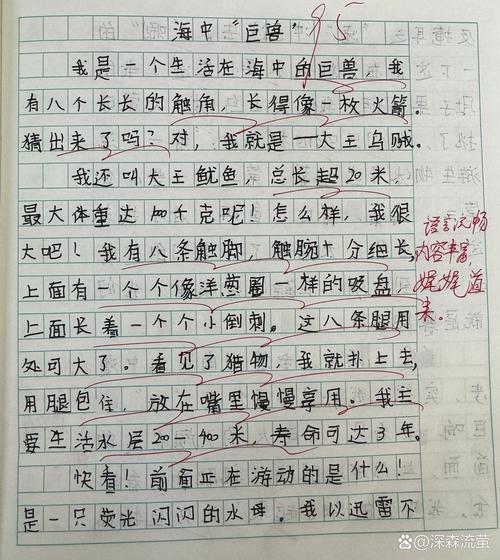 海中“巨兽”
95
我是一个生活在海中的巨兽，我
有八个长长的触角，长得像一枚火箭。
猜出来了吗？对，我就是一大王乌贼。
我还叫大王鱿鱼，总长超20米，
最大体重达100千克呢！怎么样，我很
大吧！我有八条触脚，触腕十分细长，
上面有一个个像洋葱圈一样的吸盘
上面长着一个个小倒刺。这八条腿用
处可大了。看见了猎物，我就扑上去，
用腿包住，放在嘴里慢慢享用。我主
要生活水层20一400米，寿命可达3年。
快看！前面正在游动的是什么！
是一只荧光闪闪的水母。我以迅雷不
语言流畅
内容丰富，
娓娓道
来。
@深森流萤